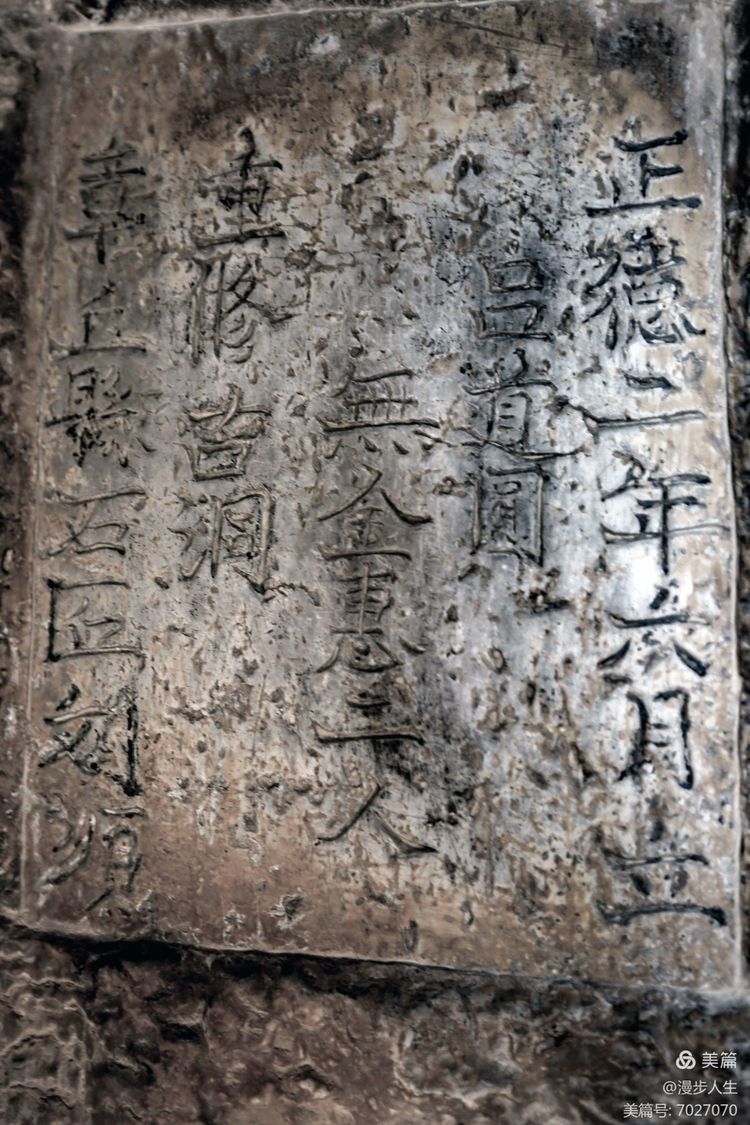 正德二年六月立
呂道同
無金惠三人
重修古洞
章丘縣石匠刘須
美篇
@漫步人生
美篇号: 7027070